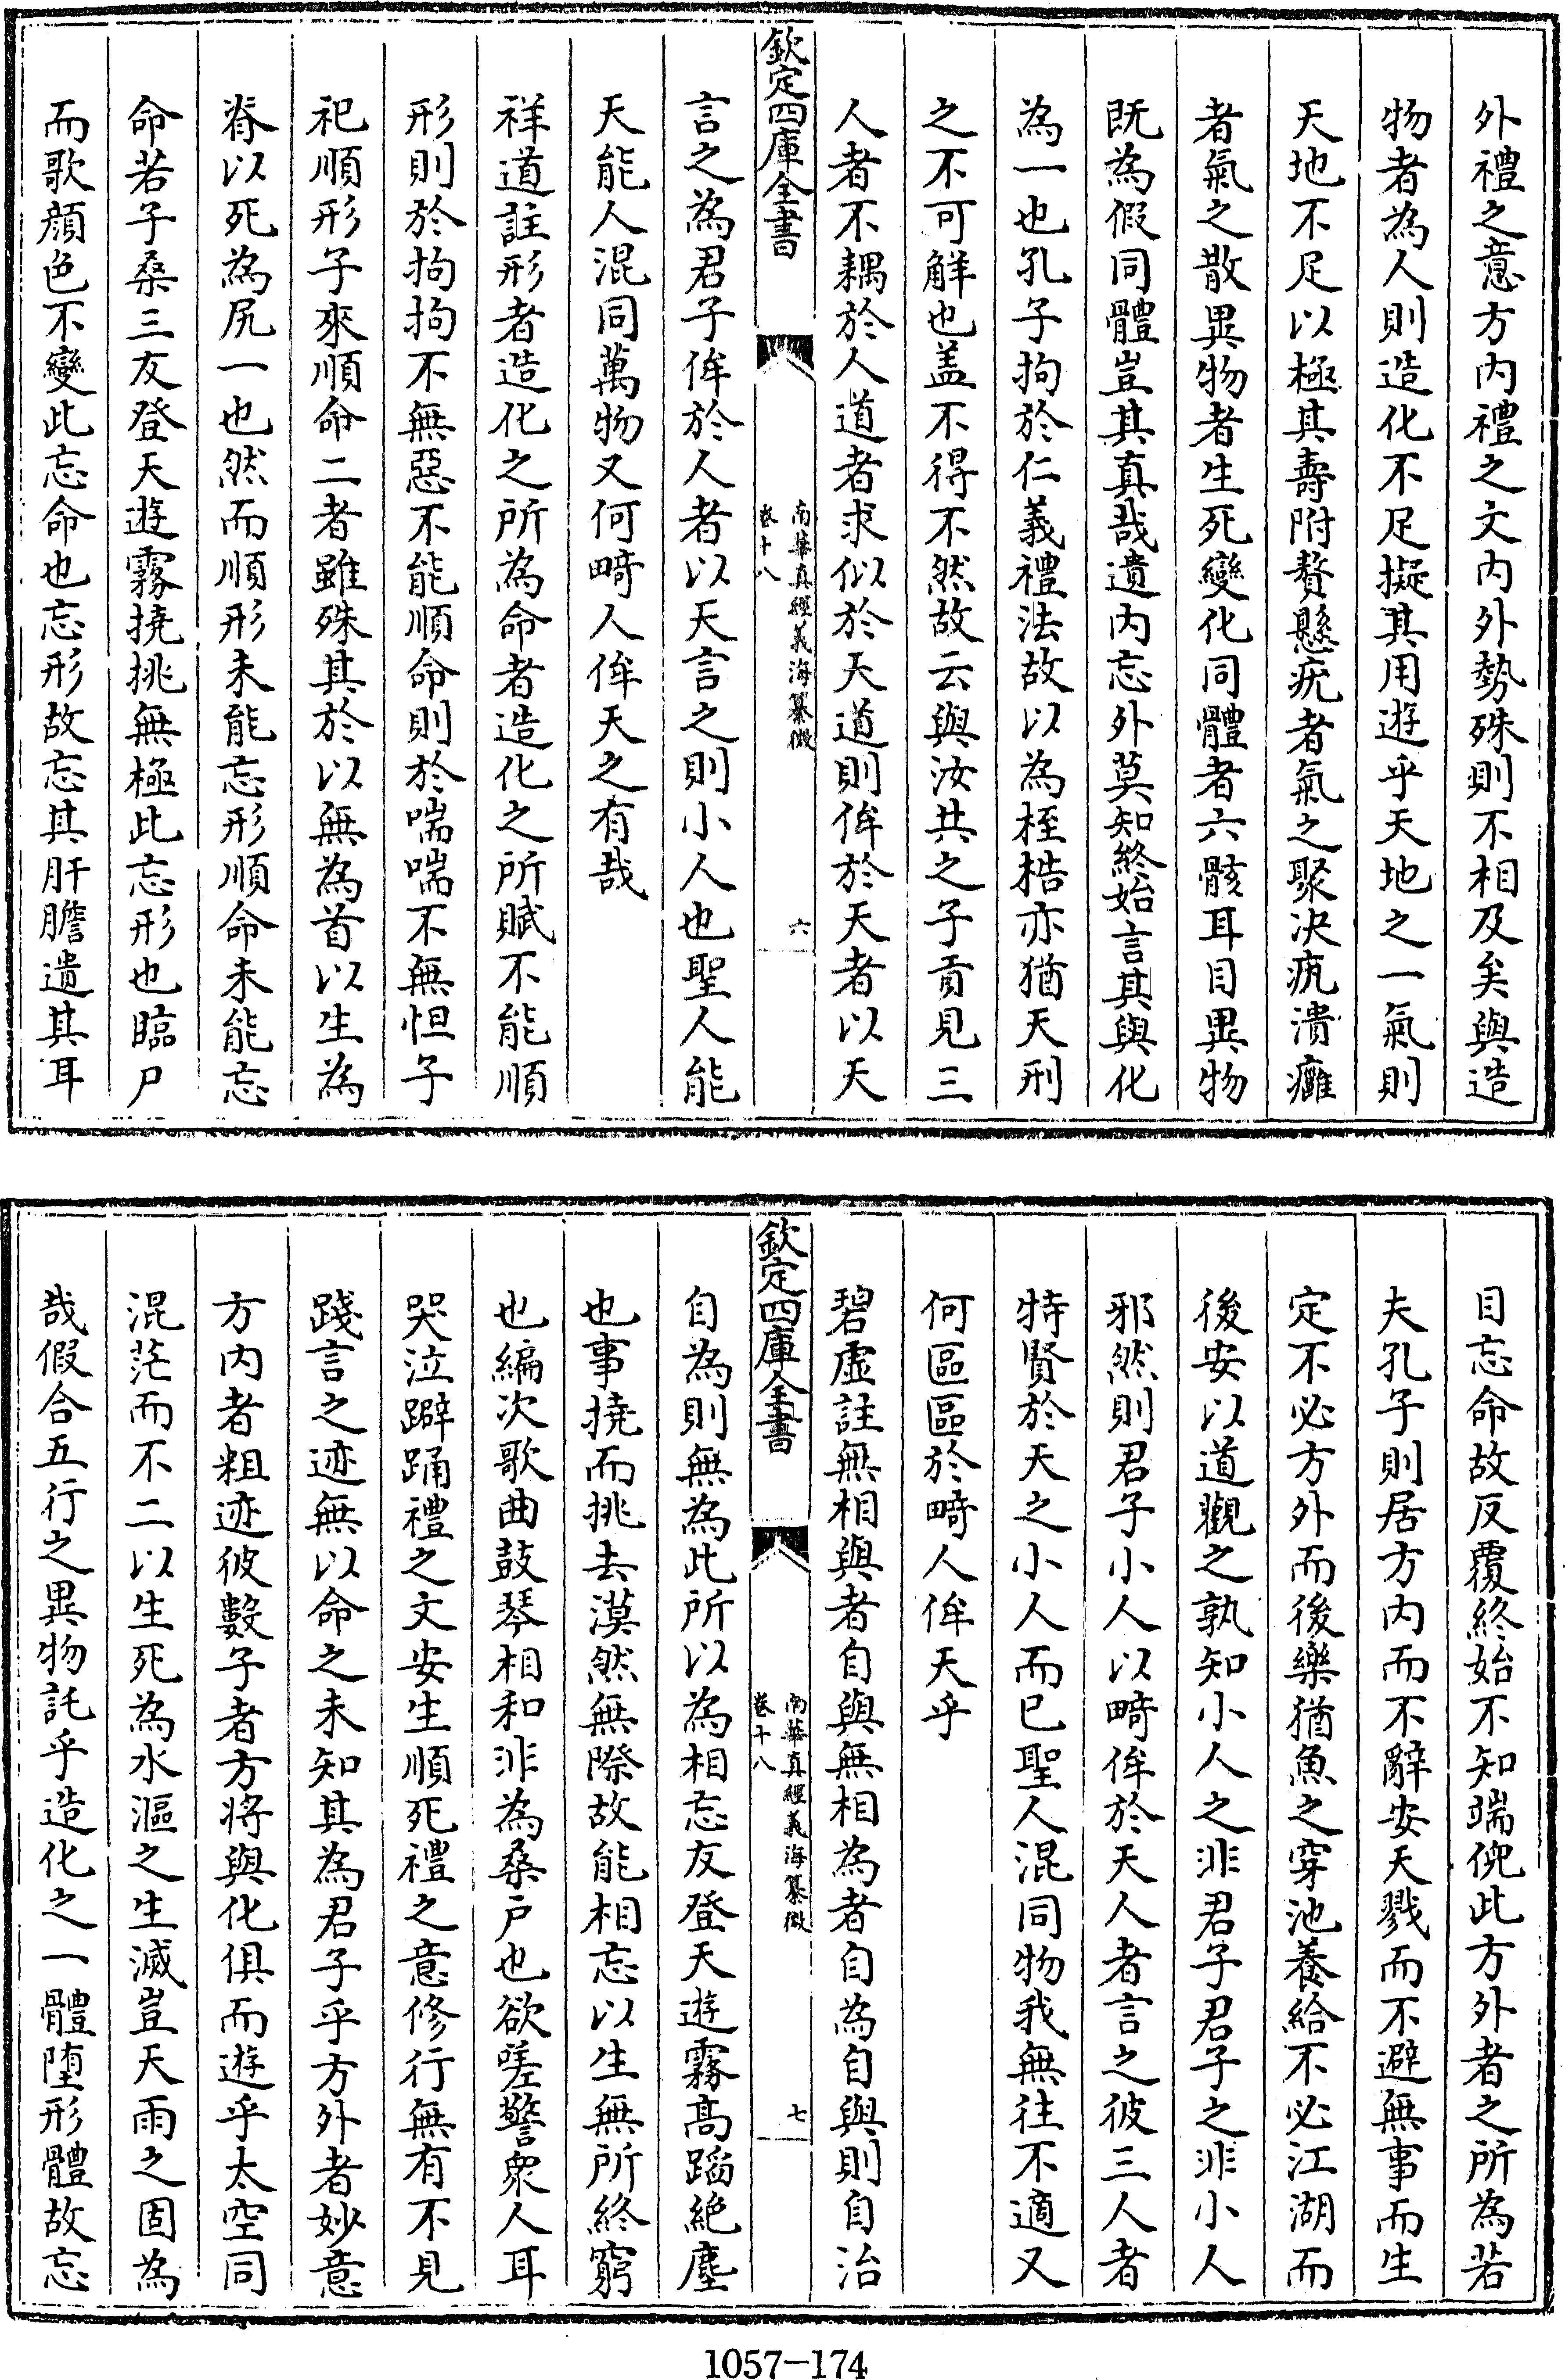 外禮之意方内禮之文内外勢殊則不相及矣與造
物者為人則造化不足擬其用遊乎天地之一氣則
天地不足以極其壽附贅懸疣者氣之聚决疣潰癰
者氣之散異物者生死變化同體者六骸耳目異物
既為假同體豈其真哉遺内忘外莫知終始言其與化
為一也孔子拘於仁義禮法故以為桎梏亦猶天刑
之不可解也盖不得不然故云與汝共之子貢見三
人者不耦於人道者求似於天道則侔於天者以天
欽定四庫全書
南華真經義海纂微
卷十八
六
言之為君子侔於人者以天言之則小人也聖人能
天能人混同萬物又何畸人侔天之有哉
祥道註形者造化之所為命者造化之所賦不能順
形則於拘拘不無惡不能順命則於喘喘不無怛子
祀順形子來順命二者雖殊其於以無為首以生為
脊以死為尻一也然而順形未能忘形順命未能忘
命若子桑三友登天遊霧撓挑無極此忘形也臨尸
而歌顔色不變此忘命也忘形故忘其肝膽遺其耳
目忘命故反覆終始不知端倪此方外者之所為若
夫孔子則居方内而不辭安天戮而不避無事而生
定不必方外而後樂猶魚之穿池養給不必江湖而
後安以道觀之孰知小人之非君子君子之非小人
邪然則君子小人以畸侔於天人者言之彼三人者
特賢於天之小人而已聖人混同物我無往不適又
何區區於畸人侔天乎
碧虛註無相與者自與無相為者自為自與則自治
欽定四庫全書
南華真經義海纂微
卷十八
七
自為則無為此所以為相忘友登天遊霧髙蹈絶塵
也事撓而挑去漠然無際故能相忘以生無所終窮
也編次歌曲鼓琴相和非為桑戸也欲嗟警衆人耳
哭泣躃踊禮之文安生順死禮之意修行無有不見
踐言之迹無以命之未知其為君子乎方外者妙意
方内者粗迹彼數子者方將與化俱而遊乎太空同
混茫而不二以生死為水漚之生滅豈天雨之固為
哉假合五行之異物託乎造化之一體墮形體故忘
1057-174